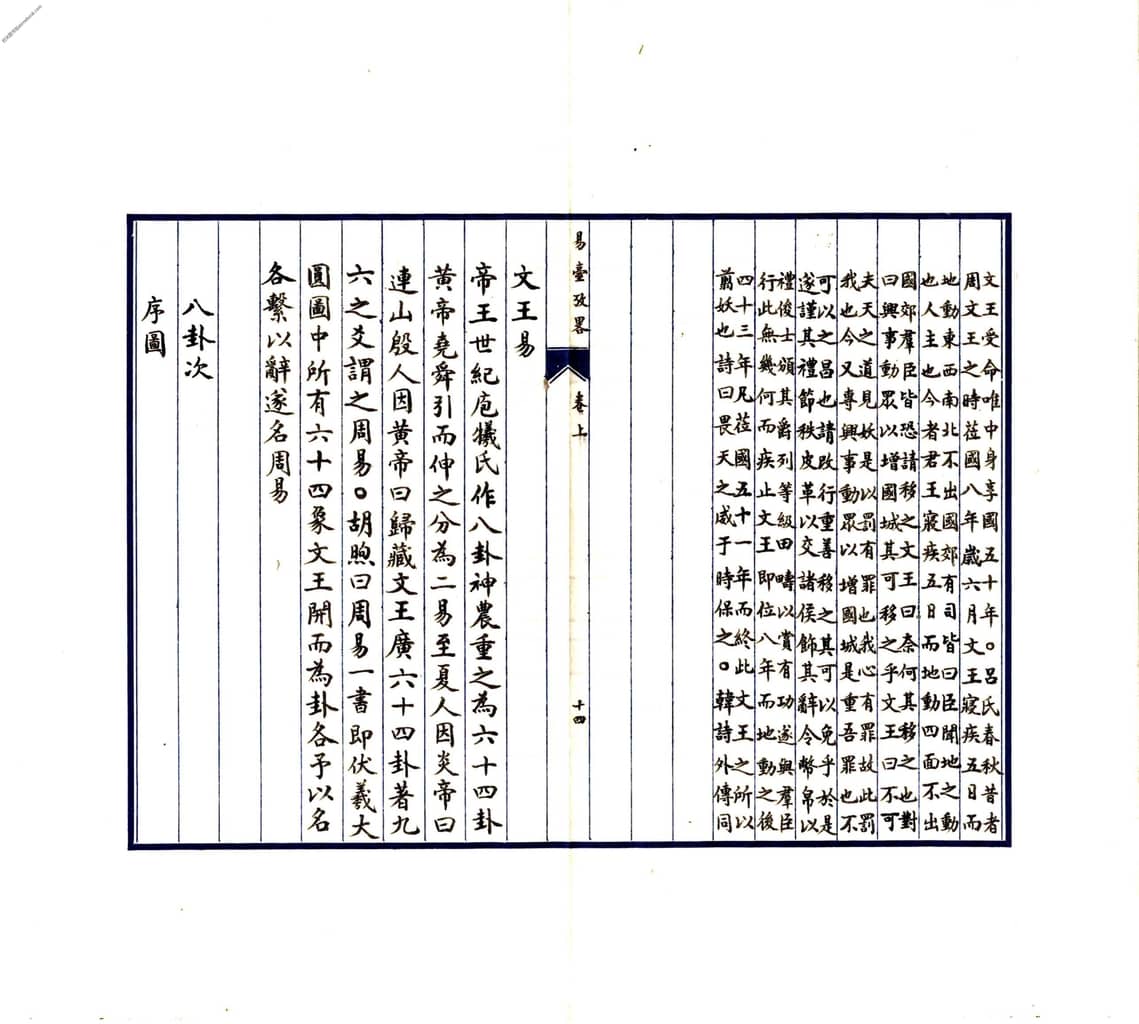 文王受命唯中身享國五十年。呂氏春秋昔者
周文王之時莅國八年歲六月文王寢疾五日而
地動東西南北不出國郊有司皆曰臣聞地之動
也人主也今者君王寢疾五日而地動四面不出
國郊羣臣皆恐請移之文王曰奈何其移之也對
曰興事動眾以增國城其可移之乎文王曰不可
夫天之道見妖是以罰有罪也我心有罪故此罰
我也今又專興事動眾以增國城是重吾罪也不
可以之昌也請改行重善移之其可以免乎於是
遂謹其禮節秩皮革以交諸侯飾其辭令幣帛以
禮俊士頒其爵列等級田疇以賞有功遂與羣臣
行此無幾何而疾止文王即位八年而地動之後
四十三年凡莅國五十一年而終此文王之所以
翦妖也詩曰畏天之威于時保之。韓詩外傳同
易臺攷畧
卷上
十四
文王易
帝王世紀庖犧氏作八卦神農重之為六十四卦
黃帝堯舜引而伸之分為二易至夏人因炎帝曰
連山殷人因黃帝曰歸藏文王廣六十四卦著九
六之爻謂之周易。胡煦曰周易一書即伏羲大
圓圖中所有六十四象文王開而為卦各予以名
各繫以辭遂名周易
八卦次
序圖